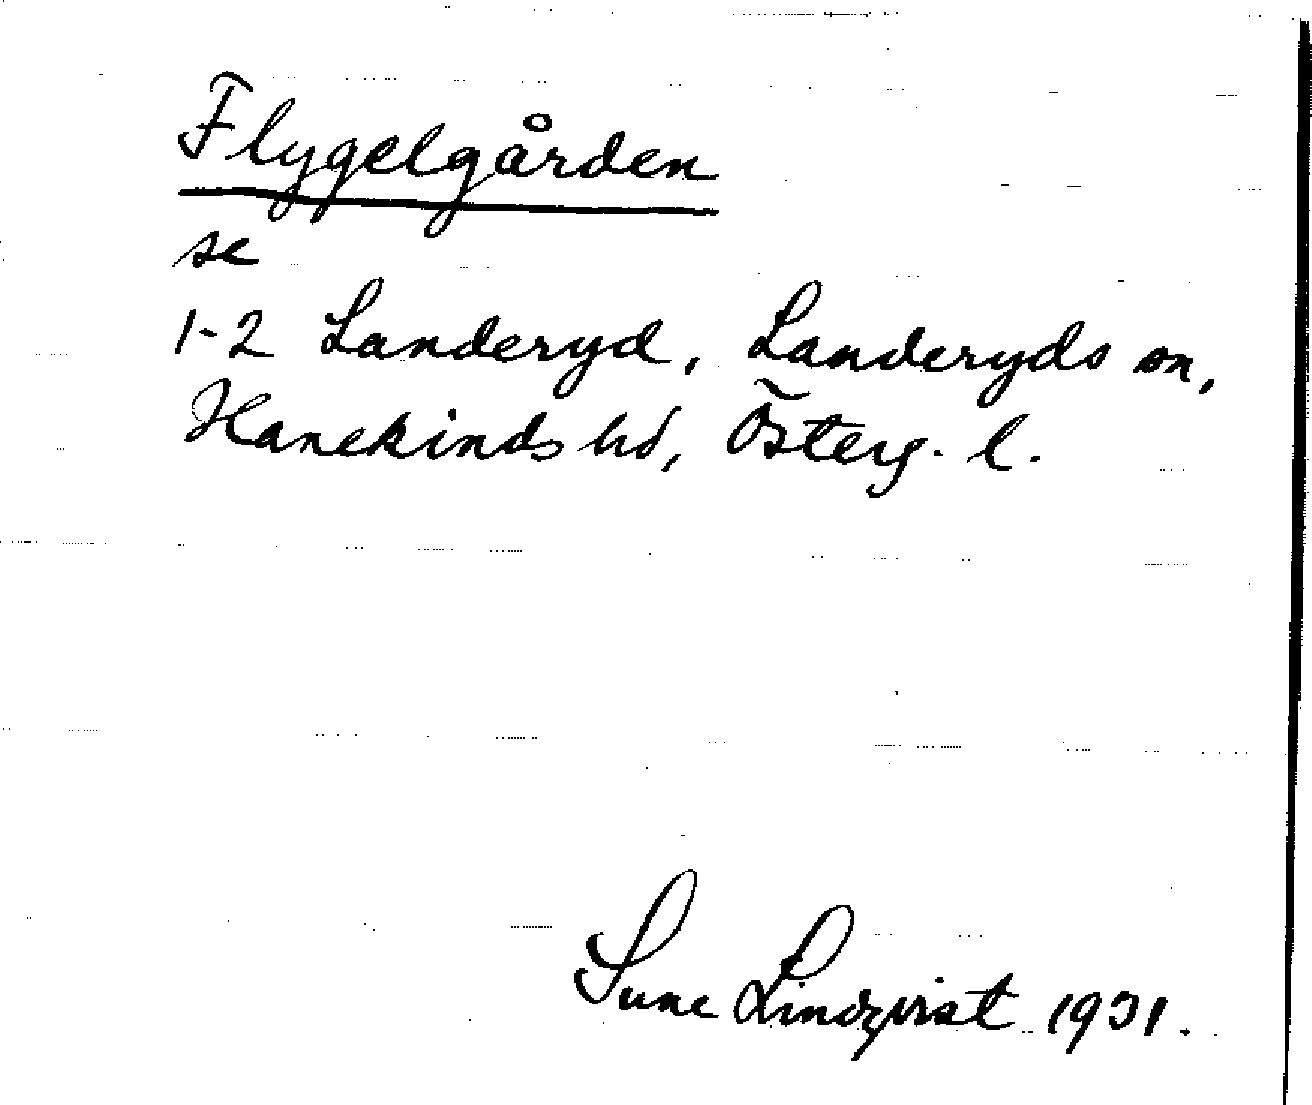 Flygelgården
se
1-2 Landeryd, Landeryds sn,
Hanekinds hd, Österg. l.
Sune Lindqvist 1931.